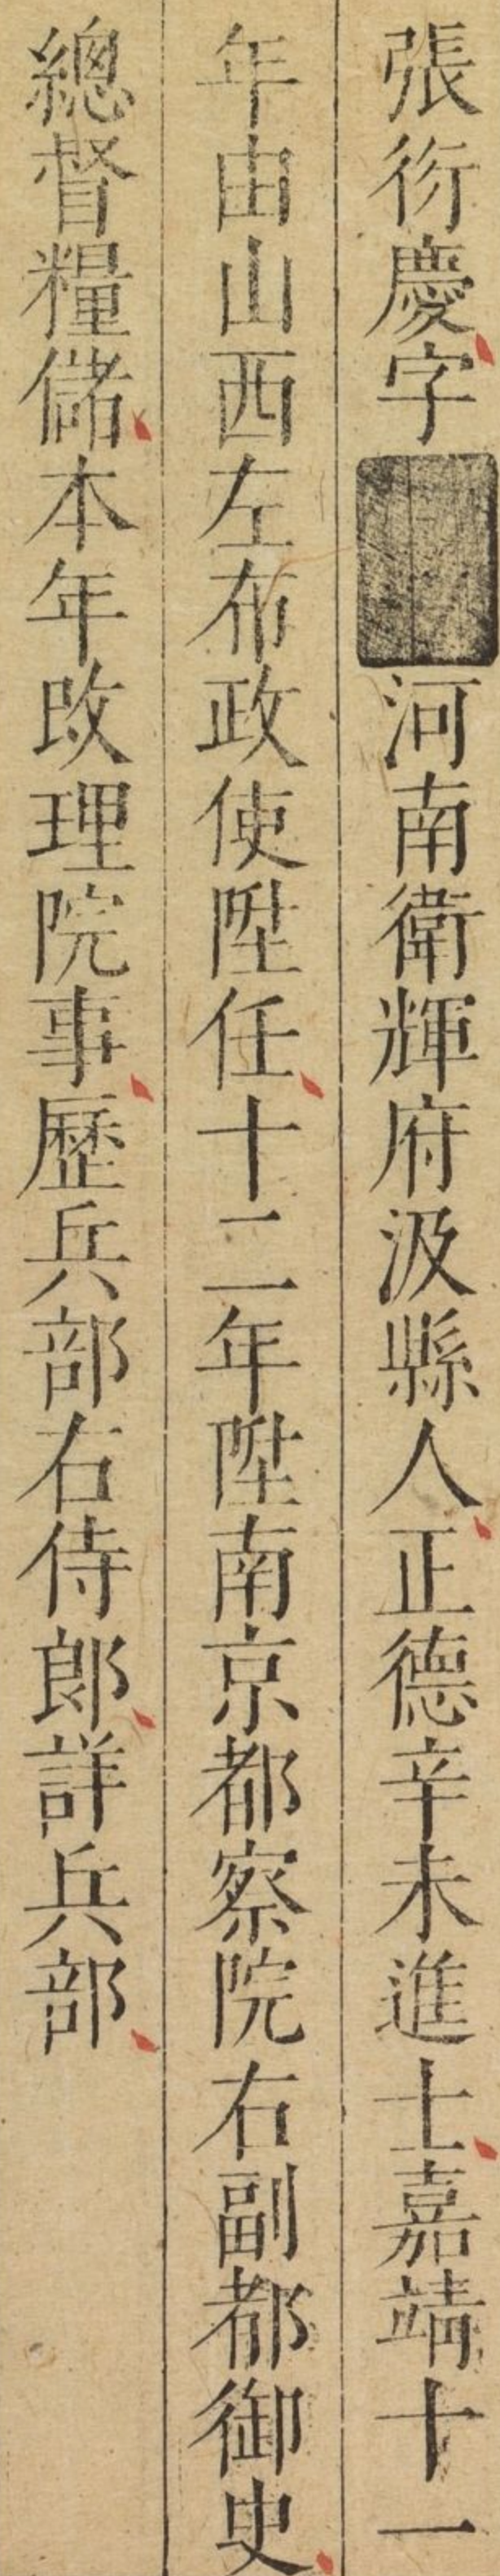 張衍慶字河南衛輝府汲縣人正德辛未進士嘉靖十一
年由山西左布政使陞任十二年陞南京都察院右副都御史
總督糧儲本年改理院事歷兵部右侍郎詳兵部